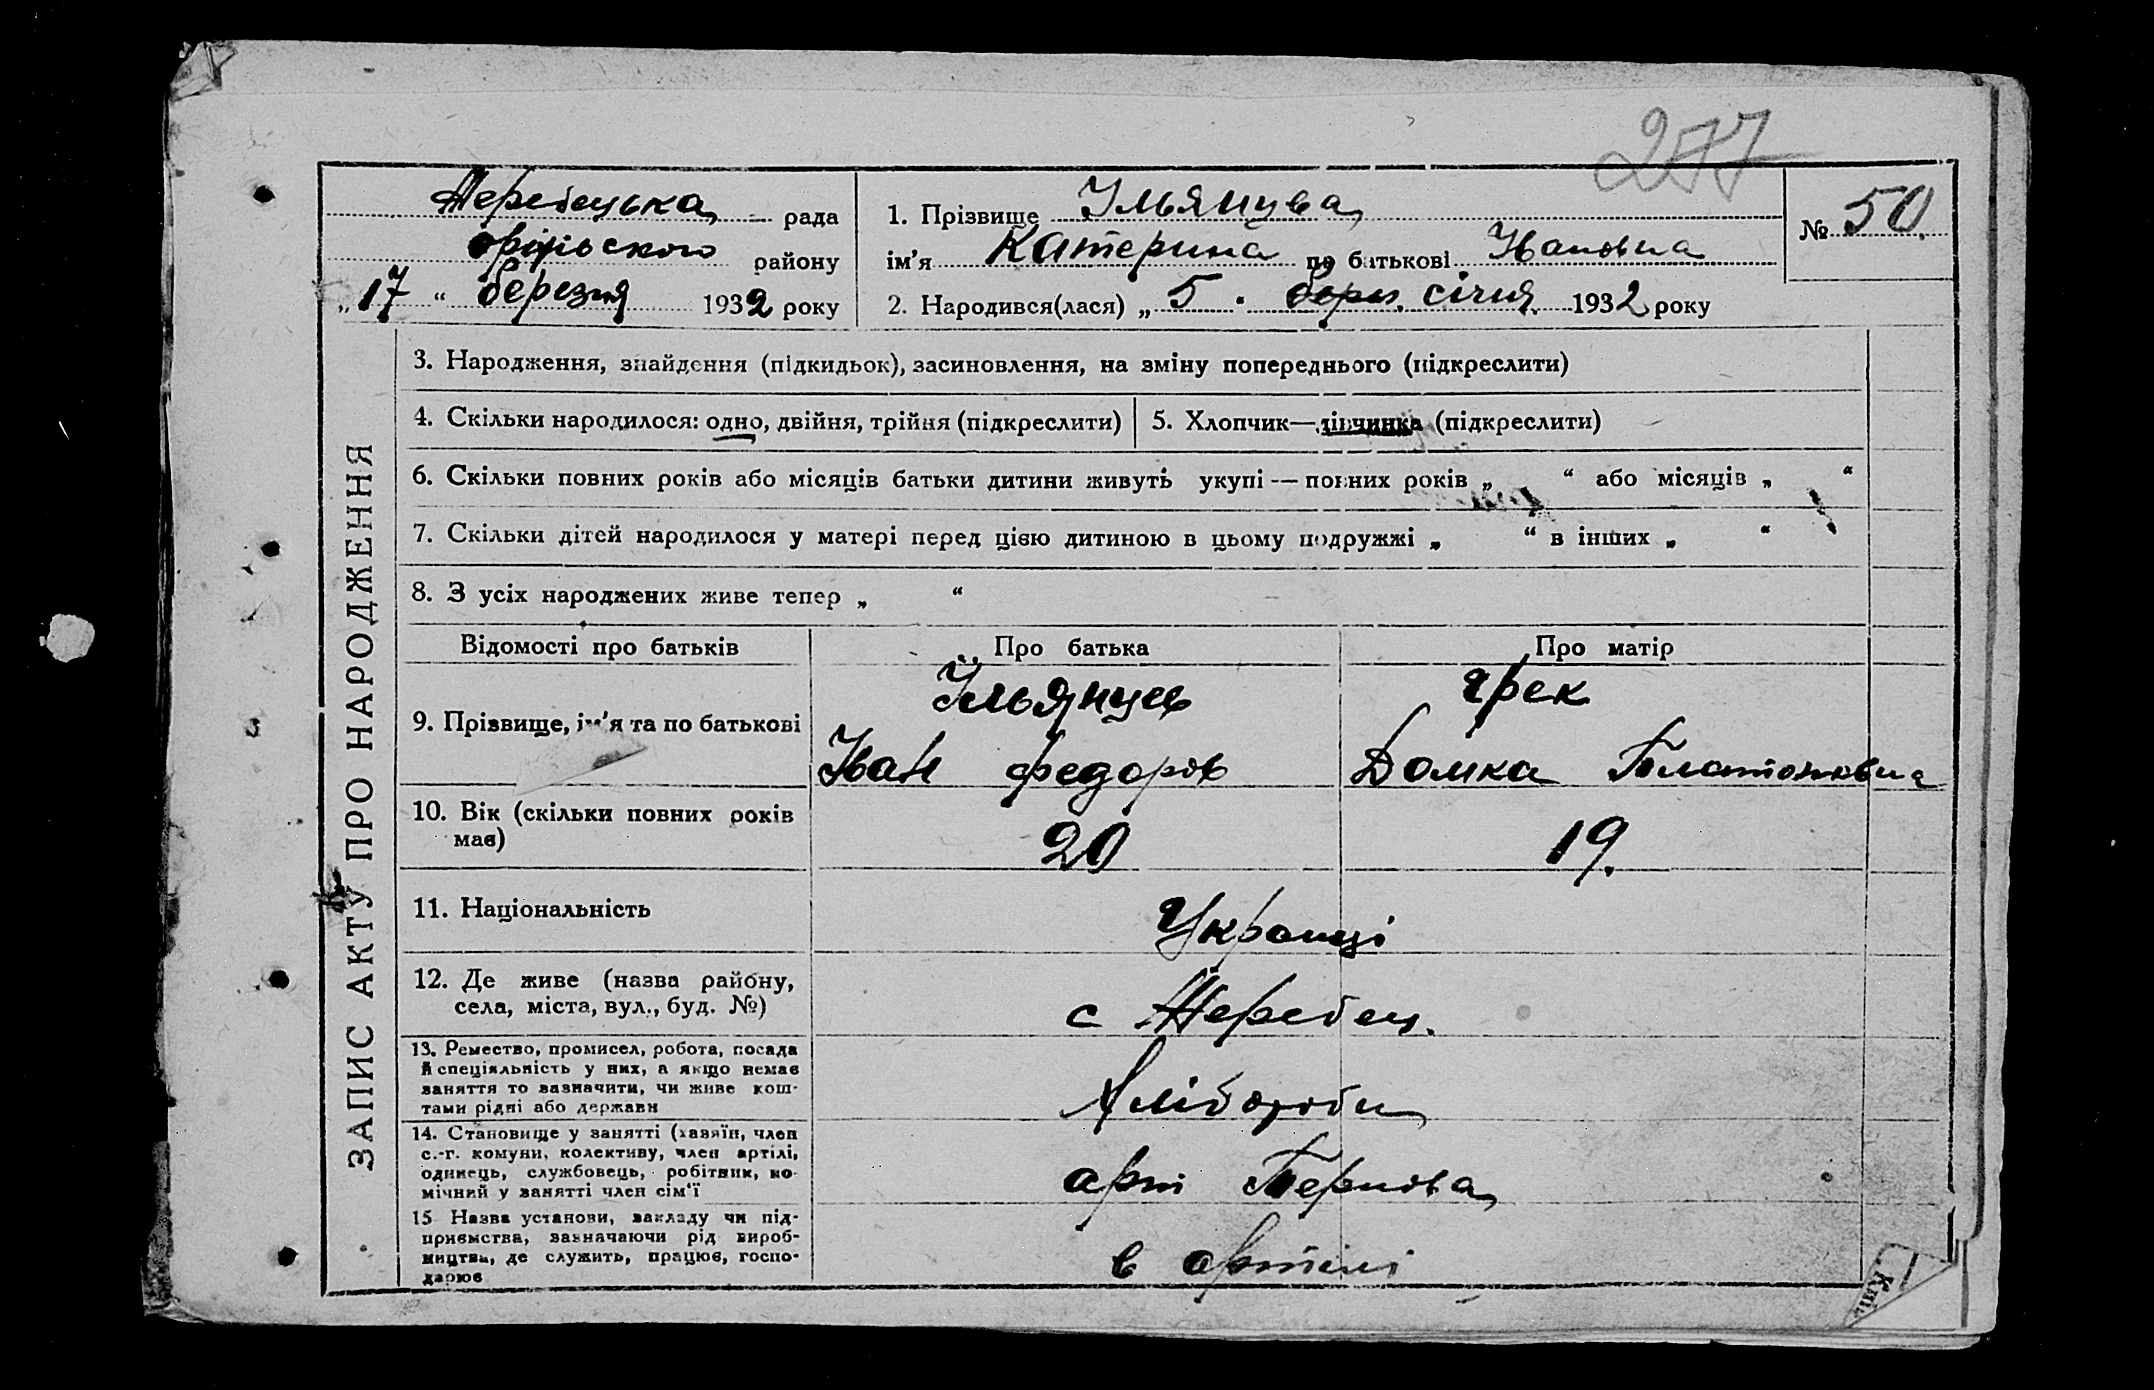 277
Жеребецька рада
Оріхівського району
„17“ березня 1932 року
1. Прізвище Ільянцева
ім'я Катерина по батькові Ивановна
№ 50.
2. Народився(лася) „ 5 · берз. січня 1932 року
ЗАПИС АКТУ ПРО НАРОДЖЕННЯ
3. Народження, знайдення (підкидьок), засиновлення, на зміну попереднього (підкреслити)
4. Скільки народилося: одно, двійня, трійня (підкреслити)
5. Хлопчик—дівчинка (підкреслити)
6. Скільки повних років або місяців батьки дитини живуть укупі — повних років „ “ або місяців „ “
7. Скільки дітей народилося у матері перед цією дитиною в цьому подружжі „ “ в інших „ “
8. З усіх народжених живе тепер „ “
Відомості про батьків Про батька Про матір
9. Прізвище, ім'я та по батькові
Ільянцев
Іван Федоров
Грек
Домка Платоновна
10. Вік (скільки повних років
має)
20 19.
11. Національність
Українці
12. Де живе (назва району,
села, міста, вул., буд. №)
с Жеребец.
13. Ремество, промисел, робота, посада
й спеціяльність у них, а якщо немає
заняття то зазначити, чи живе кош-
тами рідні або держави
Хлібороби
14. Становище у занятті (хазяїн, член
с.-г. комуни, колективу, член артілі,
одинець, службовець, робітник, по-
мічний у занятті член сім'ї
арт
15 Назва установи, закладу чи під-
приємства, зазначаючи рід вироб-
ництва, де служить, працює, госпо-
дарює
в артілі